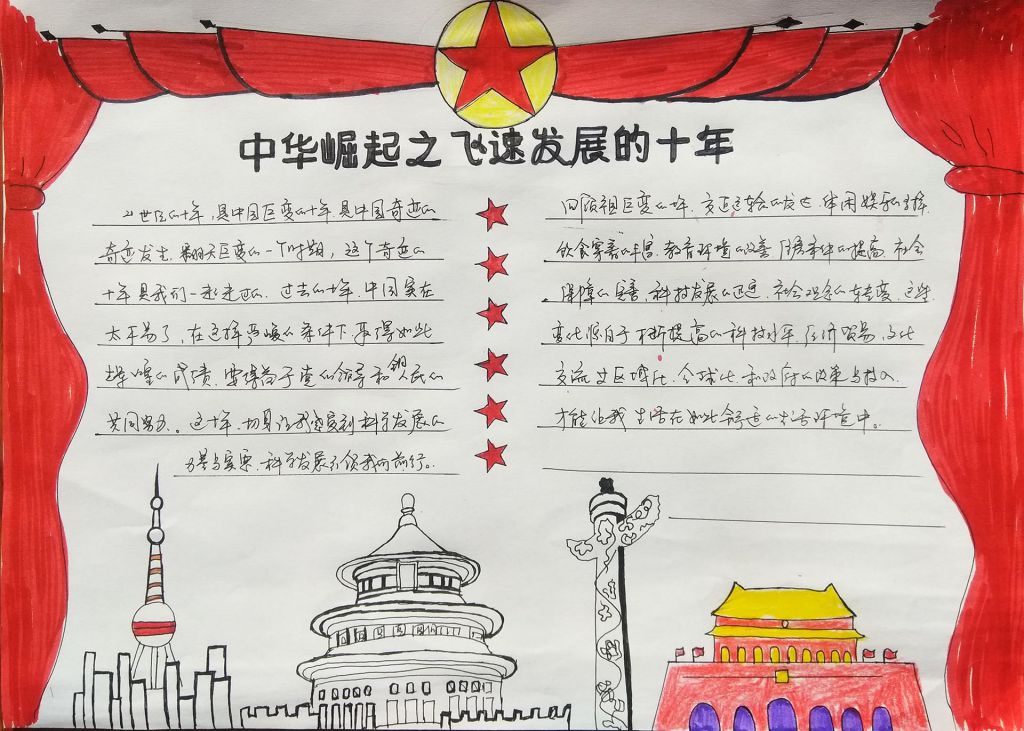 中华崛起之飞速发展的十年
21世纪的十年,是中国巨变的十年,是中国奇迹的
奇迹发生、翻天巨变的一个时期,这个奇迹的
十年是我们一起走过的。过去的十年,中国实在
太不易了,在这样严峻的条件下取得如此
辉煌的成绩,要得益于党的领导和全国人民的
共同努力。这十年,切身让我感受到科学发展的
力量与实惠,科学发展引领我们前行。
回顾祖国巨变的十年,交通运输的发达、休闲娱乐的选择、
饮食穿着的丰富、教育环境的改善、医疗条件的提高、社会
保障的完善、科技发展的迅速、社会观念的转变,这些
变化源自于不断提高的科技水平、经济贸易、文化
交流、区域化、全球化和政府的改革与投入,
才能让我生活在如此舒适的生活环境中。